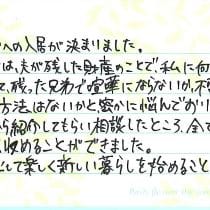 への入居が決まりました。
は、夫が残した財産のことで、私に何
て、残った兄弟で喧嘩にならないか、不
方法はないかと密かに悩んでおり
ら紹介してもらい相談したところ、全て
収めることができました。
として楽しく新しい暮らしを始めること